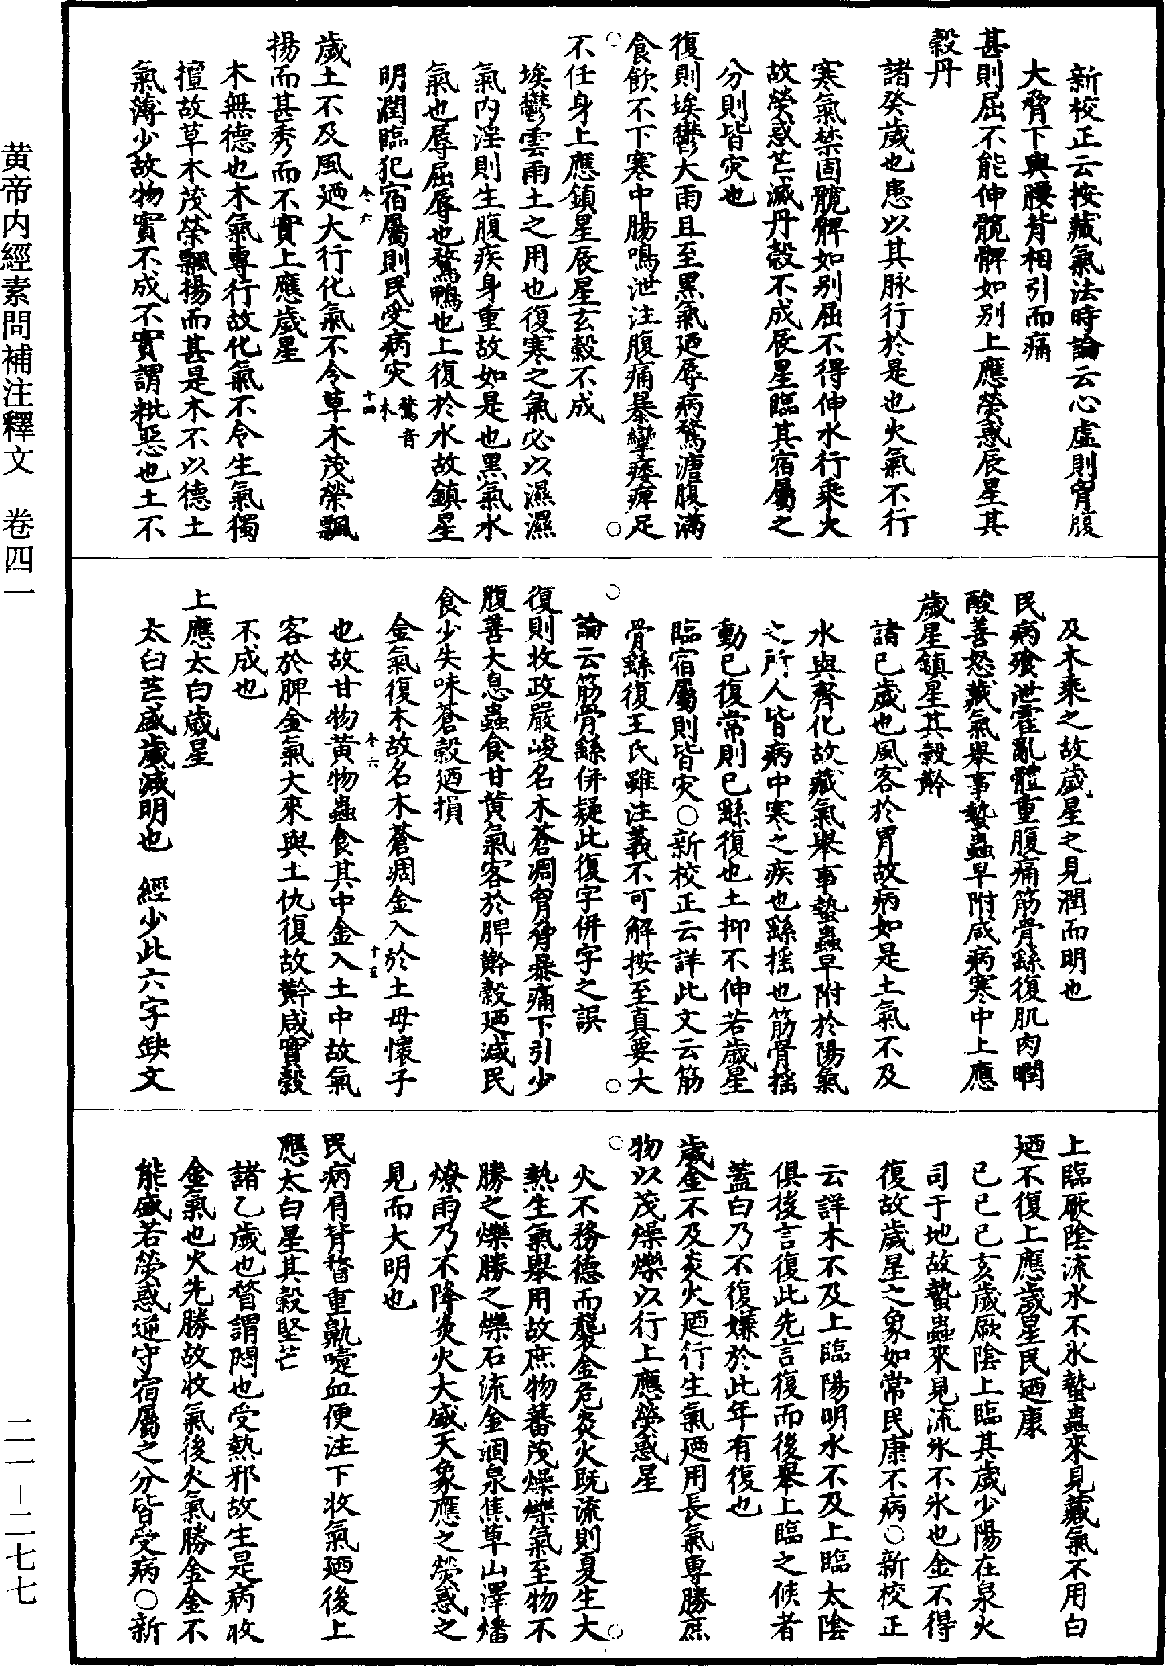 新校正云按藏氣法時論云心虛則胷腹
大脅下與腰背相引而痛
甚則屈不能伸髖髀如別上應熒惑辰星其
穀丹
諸癸歲也患以其脉行於是也火氣不行
寒氣禁固髖髀如別屈不得伸水行乘火
故熒惑芒減丹穀不成辰星臨其宿屬之
分則皆灾也
復則埃鬱大雨且至黑氣廼辱病鶩溏腹滿
食飲不下寒中腸鳴泄注腹痛暴攣痿痺足
不任身上應鎮星辰星玄穀不成
埃鬱雲雨土之用也復寒之氣必以濕濕
氣內淫則生腹疾身重故如是也黑氣水
氣也辱屈辱也鶩鴨也上復於水故鎮星
明潤臨犯宿屬則民受病灾 鶩音木
十四
冬六
歲土不及風廼大行化氣不令草木茂榮飄
揚而甚秀而不實上應歲星
木無德也木氣專行故化氣不令生氣獨
擅故草木茂榮飄揚而甚是木不以德土
氣薄少故物實不成不實謂粃惡也土不
及木乘之故歲星之見潤而明也
民病飧泄霍亂體重腹痛筋骨繇復肌肉瞤
酸善怒藏氣舉事蟄蟲早附咸病寒中上應
歲星鎮星其穀黅
諸己歲也風客於胃故病如是土氣不及
水與齊化故藏氣舉事蟄蟲早附於陽氣
之所人皆病中寒之疾也繇搖也筋骨搖
動已復常則已繇復也土抑不伸若歲星
臨宿屬則皆灾○新校正云詳此文云筋
骨繇復王氏雖注義不可解按至真要大
論云筋骨繇併疑此復字併字之誤
復則收政嚴峻名木蒼凋胷脅暴痛下引少
腹善大息蟲食甘黄氣客於脾黅穀廼減民
食少失味蒼穀廼損
金氣復木故名木蒼凋金入於土母懷子
冬六
十五
也故甘物黄物蟲食其中金入土中故氣
客於脾金氣大來與土仇復故黅咸實穀
不成也
上應太白歲星
太白芒盛歲減明也 經少此六字缺文
上臨厥陰流水不氷蟄蟲來見藏氣不用白
廼不復上應歲星民廼康
已巳已亥歲厥陰上臨其歲少陽在泉火
司于地故蟄蟲來見流氷不氷也金不得
復故歲星之象如常民康不病○新校正
云詳木不及上臨陽明水不及上臨太陰
俱後言復此先言復而後舉上臨之候者
蓋白乃不復嫌於此年有復也
歲金不及炎火廼行生氣廼用長氣專勝庶
物以茂燥爍以行上應熒惑星
火不務德而襲金危炎火既流則夏生大
熱生氣舉用故庶物蕃茂燥爍氣至物不
勝之爍勝之爍石流金涸泉焦草山澤燔
燎雨乃不降炎火大盛天象應之熒惑之
見而大明也
民病肩背瞀重鼽嚏血便注下收氣廼後上
應太白星其穀堅芒
諸乙歲也瞀謂悶也受熱邪故生是病收
金氣也火先勝故收氣後火氣勝金金不
能盛若熒惑逆守宿屬之分皆受病○新
黄帝内經素問補注釋文 卷四一
二一－二七七